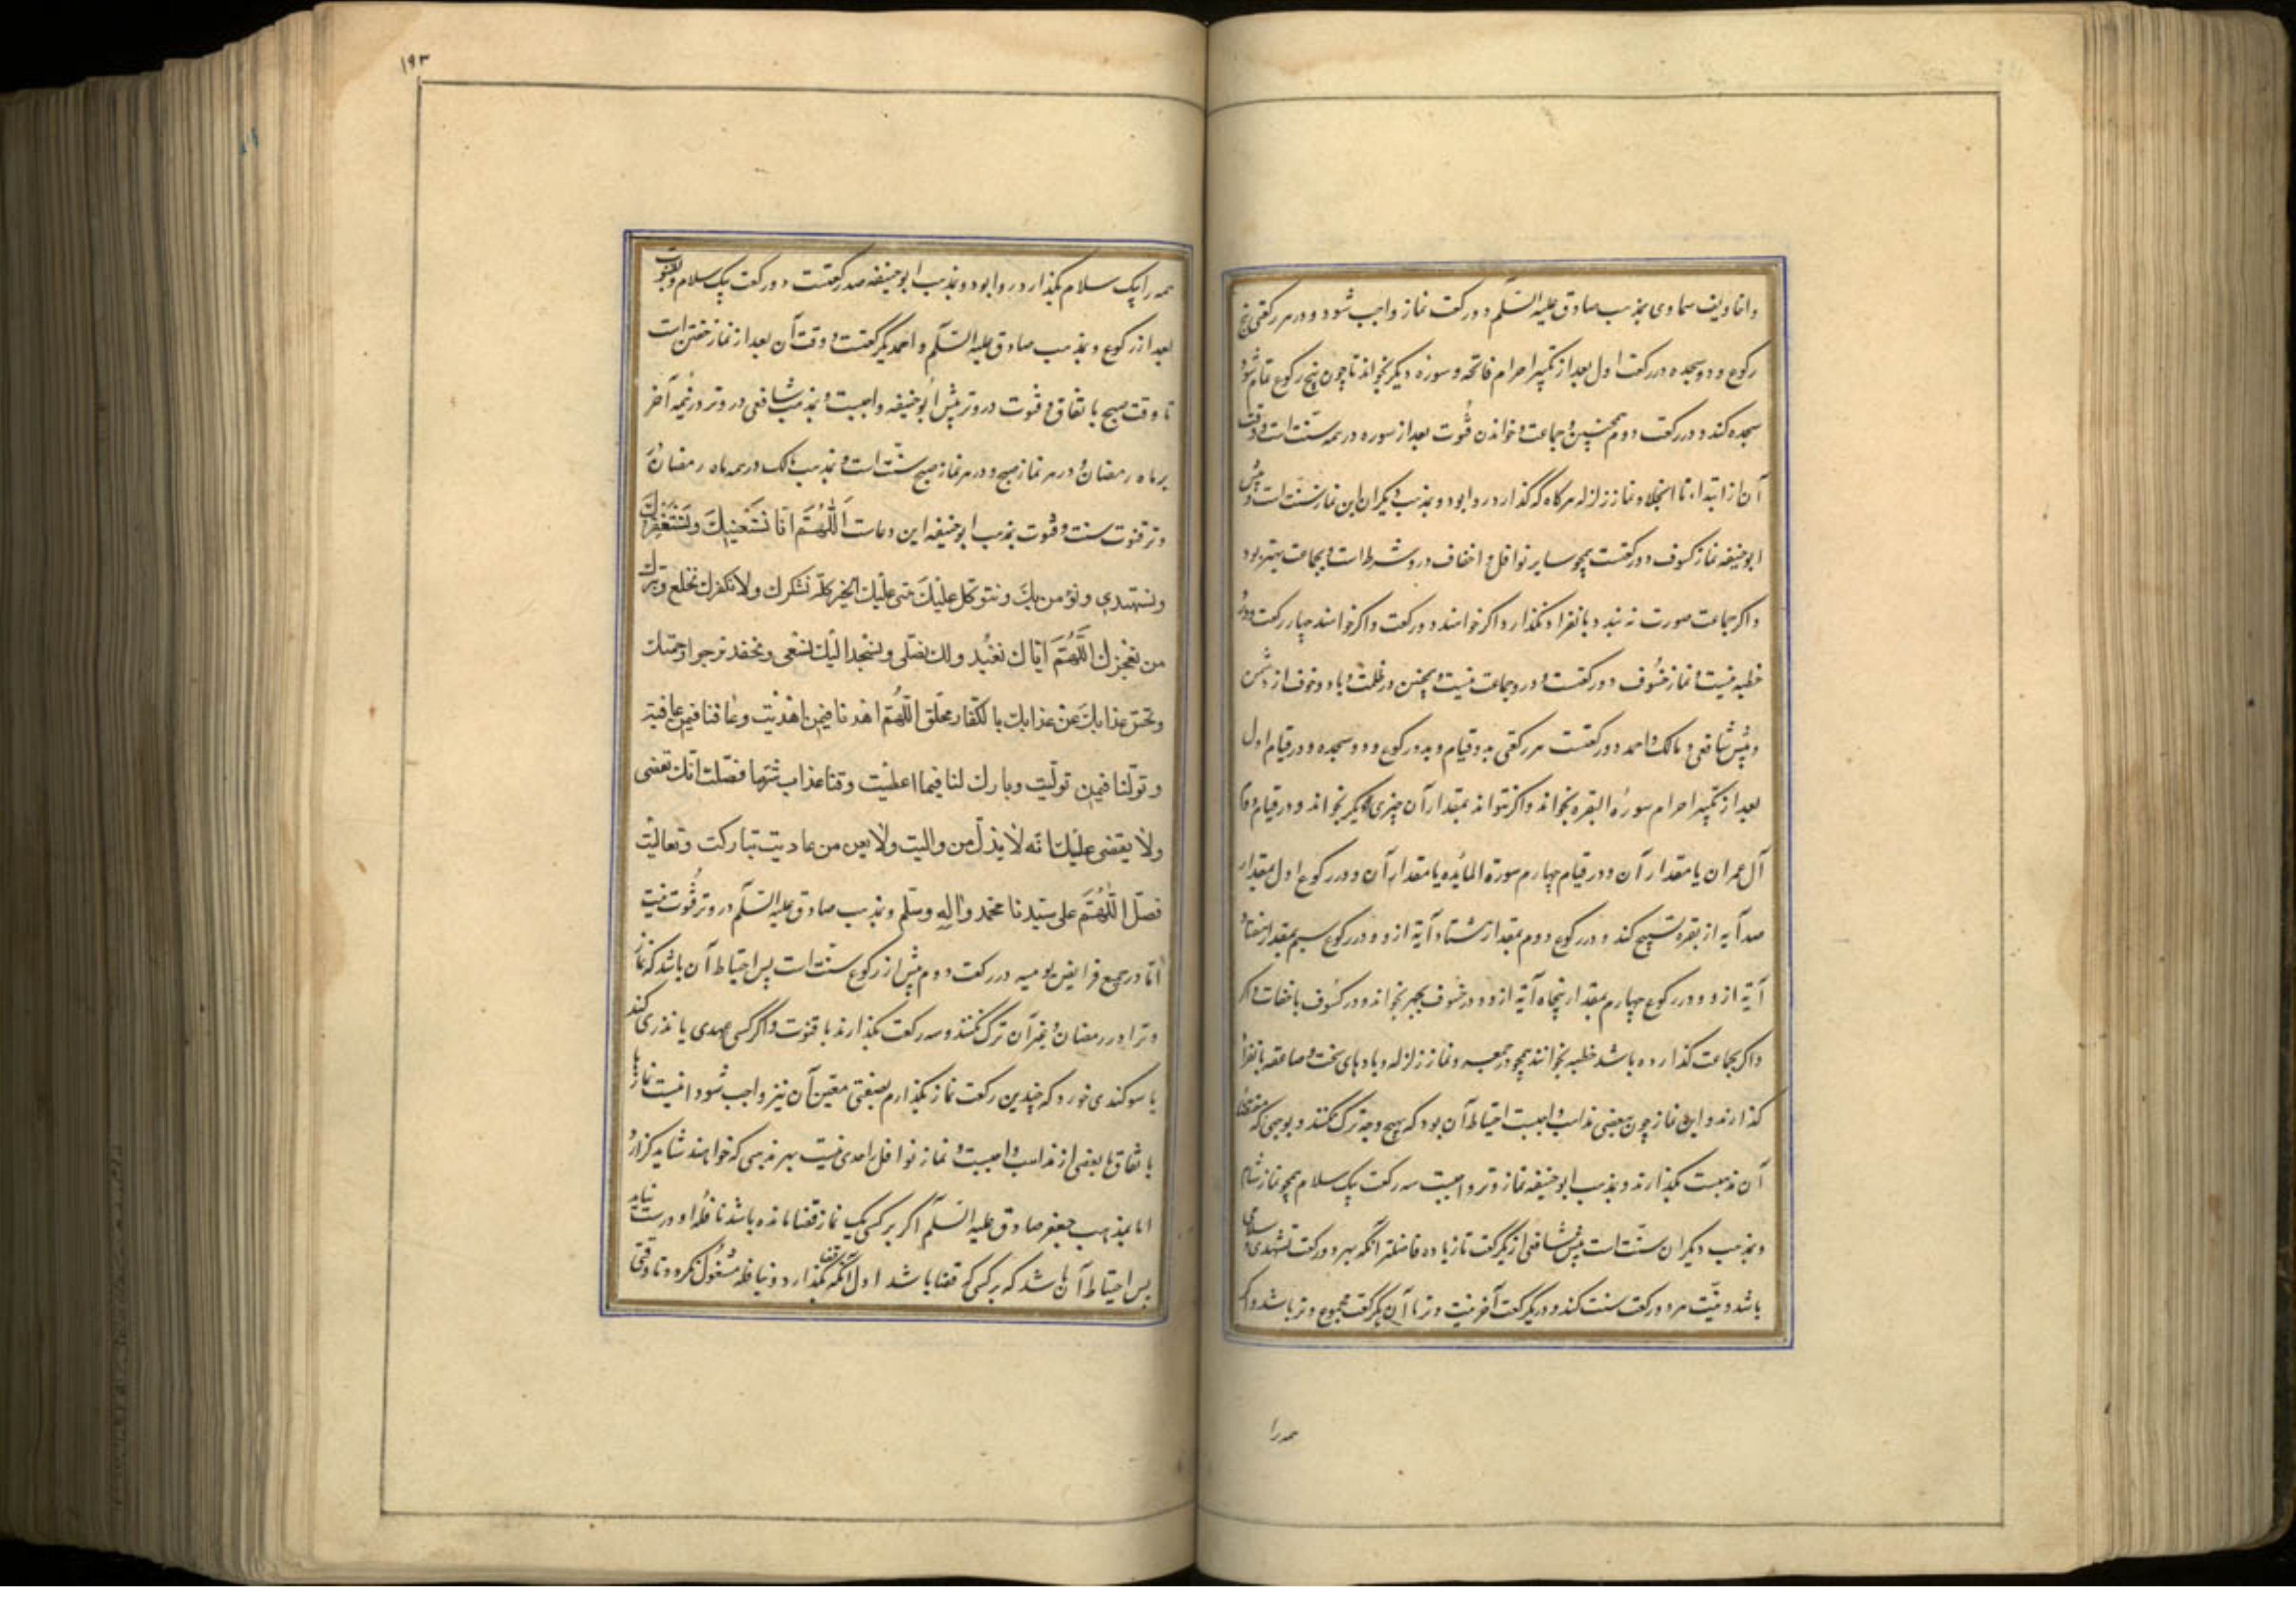 و اخاویف سماوی بمذهب صادق علیه السّلم دو رکعت نماز واجب شود و در هر رکعتی پنج
رکوع و دو سجده در رکعت اول بعد از تکبیر احرام فاتحه و سوره دیکر بخواند تا چون پنج رکوع تمام شود
سجده کند و در رکعت دوم همچنین و جماعت و خواندن قُنوت بعد از سوره در همه سنّت است و وقت
آن از ابتداء تا انجلا و نماز زلزله هرکاه که گذارد روا بود و بمذهب دیکران این نماز سنّت است و پیش
ابوحنیفه نماز کسوف دو رکعتست همچو سایر نوافل و اخفاف درو شرط است و بجماعت بهتر بود
و اکر جماعت صورت نه بندد بانفراد بکذارد اکر خواهند دو رکعت و اکر خواهند چهار رکعت و درو
خطبه نیست و نماز خسُوف دو رکعتست و درو جماعت نیست و همچنین در ظلمت و باد و خوف از دشمن
و پیش شافعی و مالک و احمد دو رکعتست هر رکعتی بدو قیام و بدو رکوع و دو سجده و در قیام اول
بعد از تکبیر احرام سورة البقره بخواند و اکر نتواند بمقدار آن چیزی دیکر بخواند و در قیام دوم
آل عمران یا مقدار آن و در قیام چهارم سورة المائده یا مقدار آن و در رکوع اول مقدار
صد آیه از بقره تسبیح کند و در رکوع دوم بمقدار هشتاد آیة ازو و در رکوع سیم بمقدار هفتاد
آیة ازو و در رکوع چهارم بمقدار پنجاه آیة ازو و در خسوف بجهر بخواند و در کسُوف باخفات و اکر
و اکر بجماعت کذارده باشد خطبه بخوانند همچو در جمعه و نماز زلزله و بادهای سخت و صاعقه بانفراد
کذارند و این نماز چون ببعضی مذاهب واجبست احتیاط آن بود که بهیچ وجه ترک نکنند و بوجهی که مقتضای
آن مذهبست بکذارند و بمذهب ابوحنیفه نماز وتر واجبست سه رکعت بیک سلام همچو نماز شام
و بمذهب دیکران سنّت است پیش شافعی از یکرکعت تا یازده فاضلتر آنکه بهر دو رکعت تشهدی و سلامی
باشد و نیّت هر دو رکعت سنت کند و در یکرکعت آخر نیت وتر تا آن یکرکعت مجموع وتر باشد و اکر
همه را
۱۹۳
همه را بیک سلام بکذارد روا بود و بمذهب ابوحنیفه سه رکعتست دو رکعت بیک سلام و بقنوت
بعد از رکوع و بمذهب صادق علیه السّلم و احمد یکرکعتست و وقت آن بعد از نماز خفتن است
تا وقت صبح باتفاق و قنوت در وتر پیش ابوحنیفه واجبست و بمذهب شافعی در وتر در نیمه آخر
هر ماه رمضان و در هر نماز صبح و در هر نماز صبح سنّت است و بمذهب مالک در همه ماه رمضان در
وتر قنوت سنت و قنوت بمذهب ابوحنیفه این دعاست اَللّٰهُمَّ انّا نَسْتَعینُكَ وَنَسْتَغفِرُكَ
ونستهدی ونؤمن بِكَ ونتوكّل عَلَیْكَ نثنی عَلَیْكَ الخیر كلّه نشكرك ولا نكفرك نخلع ونترك
من یفجرك اللّهُمَّ ایّاك نعبُد ولك نصَلّی ونسْجُد الیْكَ نسْعی ونحفد نرجوا رحمتك
ونخشی عذابكَ عَنْ عذابك بالكفّار محلق اللّهُمَّ اهْدنا فیمَن اهْدیْت وعَافنا فیمن عافیت
وتولّنا فیمَن تولّیت وبارك لنا فیما اعطیْت وقنا عذاب شرّها فضّلت انّك تقضی
ولا یقضی علیْك انّه لا یذلّ من والیت ولا یعزّ من عادیت تباركت وتعالیْت
فصَلّ اللّٰهُمَّ علی سیّدنا محمّد وآلِهِ وسلّم و بمذهب صادق علیه السّلم در وتر قُنوت نیست
امّا در جمیع فرایض یومیه در رکعت دوم پیش از رکوع سنّت است پس احتیاط آن باشد که نماز
وتر در رمضان و غیر آن ترک نکنند و سه رکعت بکذارند با قنوت و اکر کسی عهدی یا نذری کند
یا سوکندی خورد که چندین رکعت نماز بکذارم بصفتی معیّن آن نیز واجب شود اینست نمازها
باتفاق یا ببعضی از مذاهب واجبست و نماز نوافل را حدی نیست بهر مذهبی که خواهند شاید کزارد
اما بمذهب جعفر صادق علیه السّلم اکر بر کسی یک نماز قضا مانده باشد نافله او درست نیاید
پس احتیاط آن باشد که بر کسی که قضا باشد اول آنکه قضا بکذارد و بنافله مشغول نکردد تا وقتی